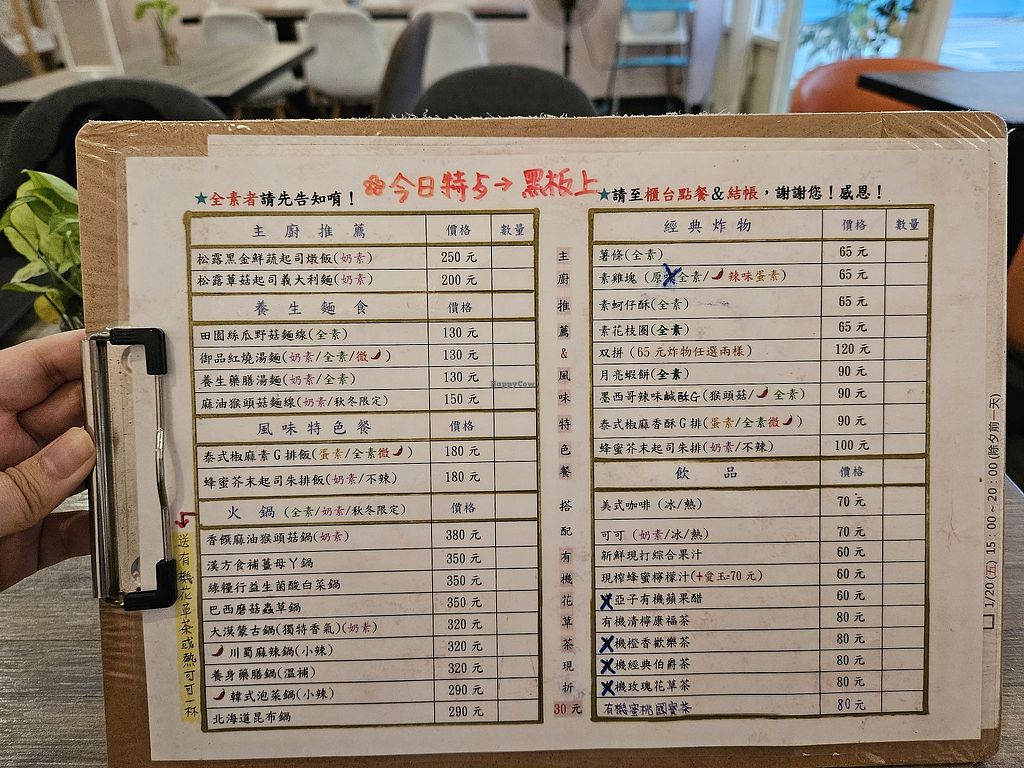 ❀今日特5→黑板上
★全素者請先告知唷！
★請至櫃台點餐&結帳，謝謝您！感恩！
主廚推薦 價格 數量
松露黑金鮮蔬起司燉飯(奶素) 250 元
松露蕈菇起司義大利麵(奶素) 200 元
養生麵食 價格
田園絲瓜野菇麵線(全素) 130 元
御品紅燒湯麵(奶素/全素/微🌶) 130 元
養生藥膳湯麵(奶素/全素) 130 元
麻油猴頭菇麵線(奶素/秋冬限定) 150 元
風味特色餐 價格
泰式椒麻素G排飯(蛋素/全素微🌶) 180 元
蜂蜜芥末起司朱排飯(奶素/不辣) 180 元
火鍋(全素/奶素/秋冬限定) 價格
香饌麻油猴頭菇鍋(奶素) 380 元
漢方食補薑母丫鍋 350 元
綠糧行益生菌酸白菜鍋 350 元
巴西磨菇蟲草鍋 350 元
大漠蒙古鍋(獨特香氣)(奶素) 320 元
🌶川蜀麻辣鍋(小辣) 320 元
養身藥膳鍋(溫補) 320 元
🌶韓式泡菜鍋(小辣) 290 元
北海道昆布鍋 290 元
送有機花草茶或熱可可一杯
主廚推薦&風味特色餐搭配有機花草茶現折30元
經典炸物 價格 數量
薯條(全素) 65 元
素雞塊 (原 全素/🌶辣味蛋素) 65 元
素蚵仔酥(全素) 65 元
素花枝圈(全素) 65 元
双拼 (65 元炸物任選兩樣) 120 元
月亮蝦餅(全素) 90 元
墨西哥辣味鹹酥G(猴頭菇/🌶全素) 90 元
泰式椒麻香酥G排(蛋素/全素微🌶) 90 元
蜂蜜芥末起司朱排(奶素/不辣) 100 元
飲品 價格
美式咖啡 (冰/熱) 70 元
可可 (奶素/冰/熱) 70 元
新鮮現打綜合果汁 60 元
現榨蜂蜜檸檬汁(+愛玉=70 元) 60 元
亞子有機蘋果醋 60 元
有機清檸康福茶 80 元
機橙香歡樂茶 80 元
機經典伯爵茶 80 元
機玫瑰花草茶 80 元
有機蜜桃國寶茶 80 元
□ 1/20 (五) 15:00~20:00 (除夕前一天)
HappyCow